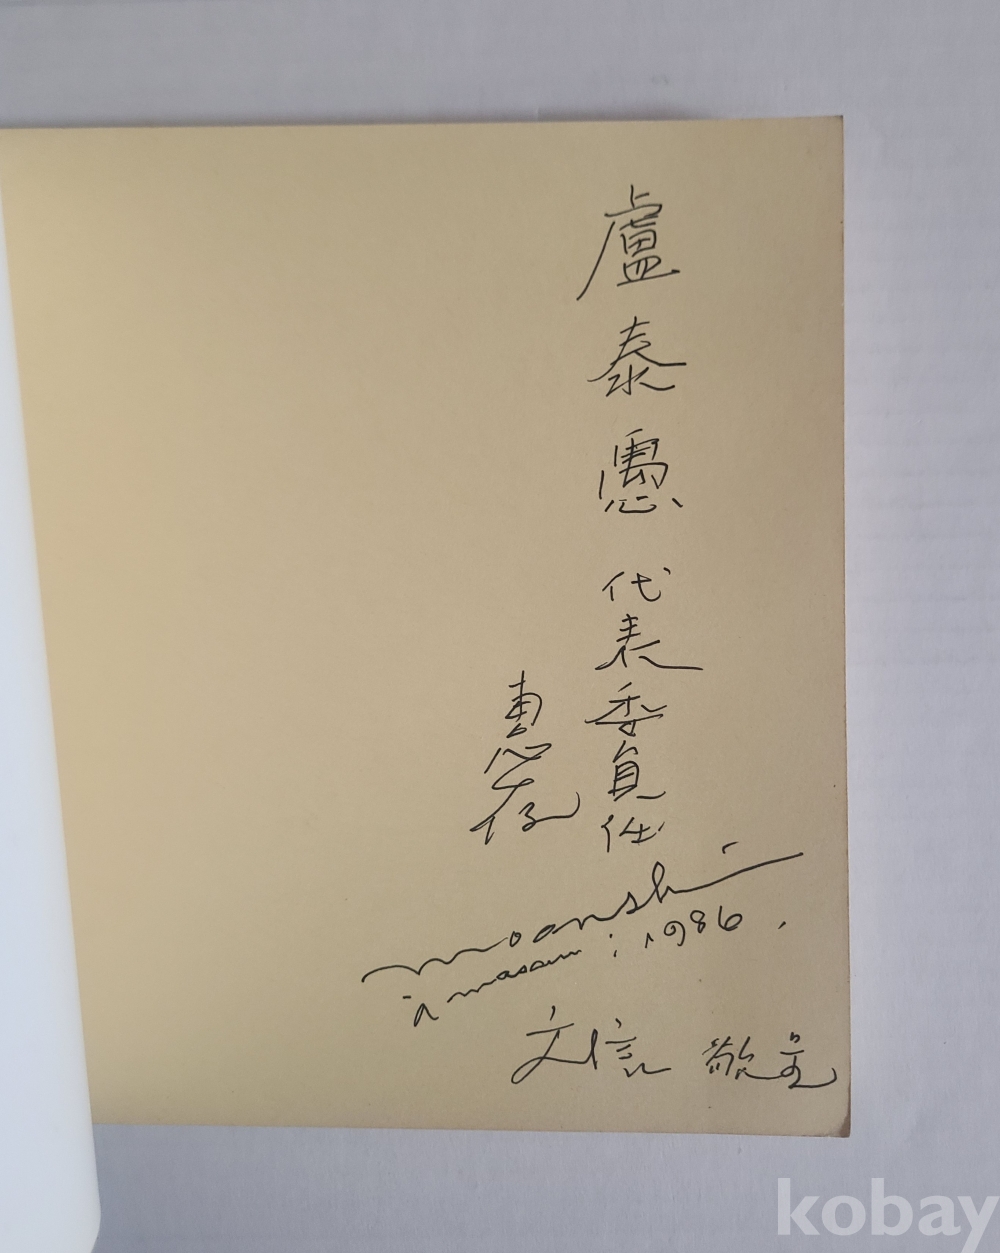 盧泰愚 代表委員任
惠存
moonshin
à masan : 1986.
文信 敬呈
kobay